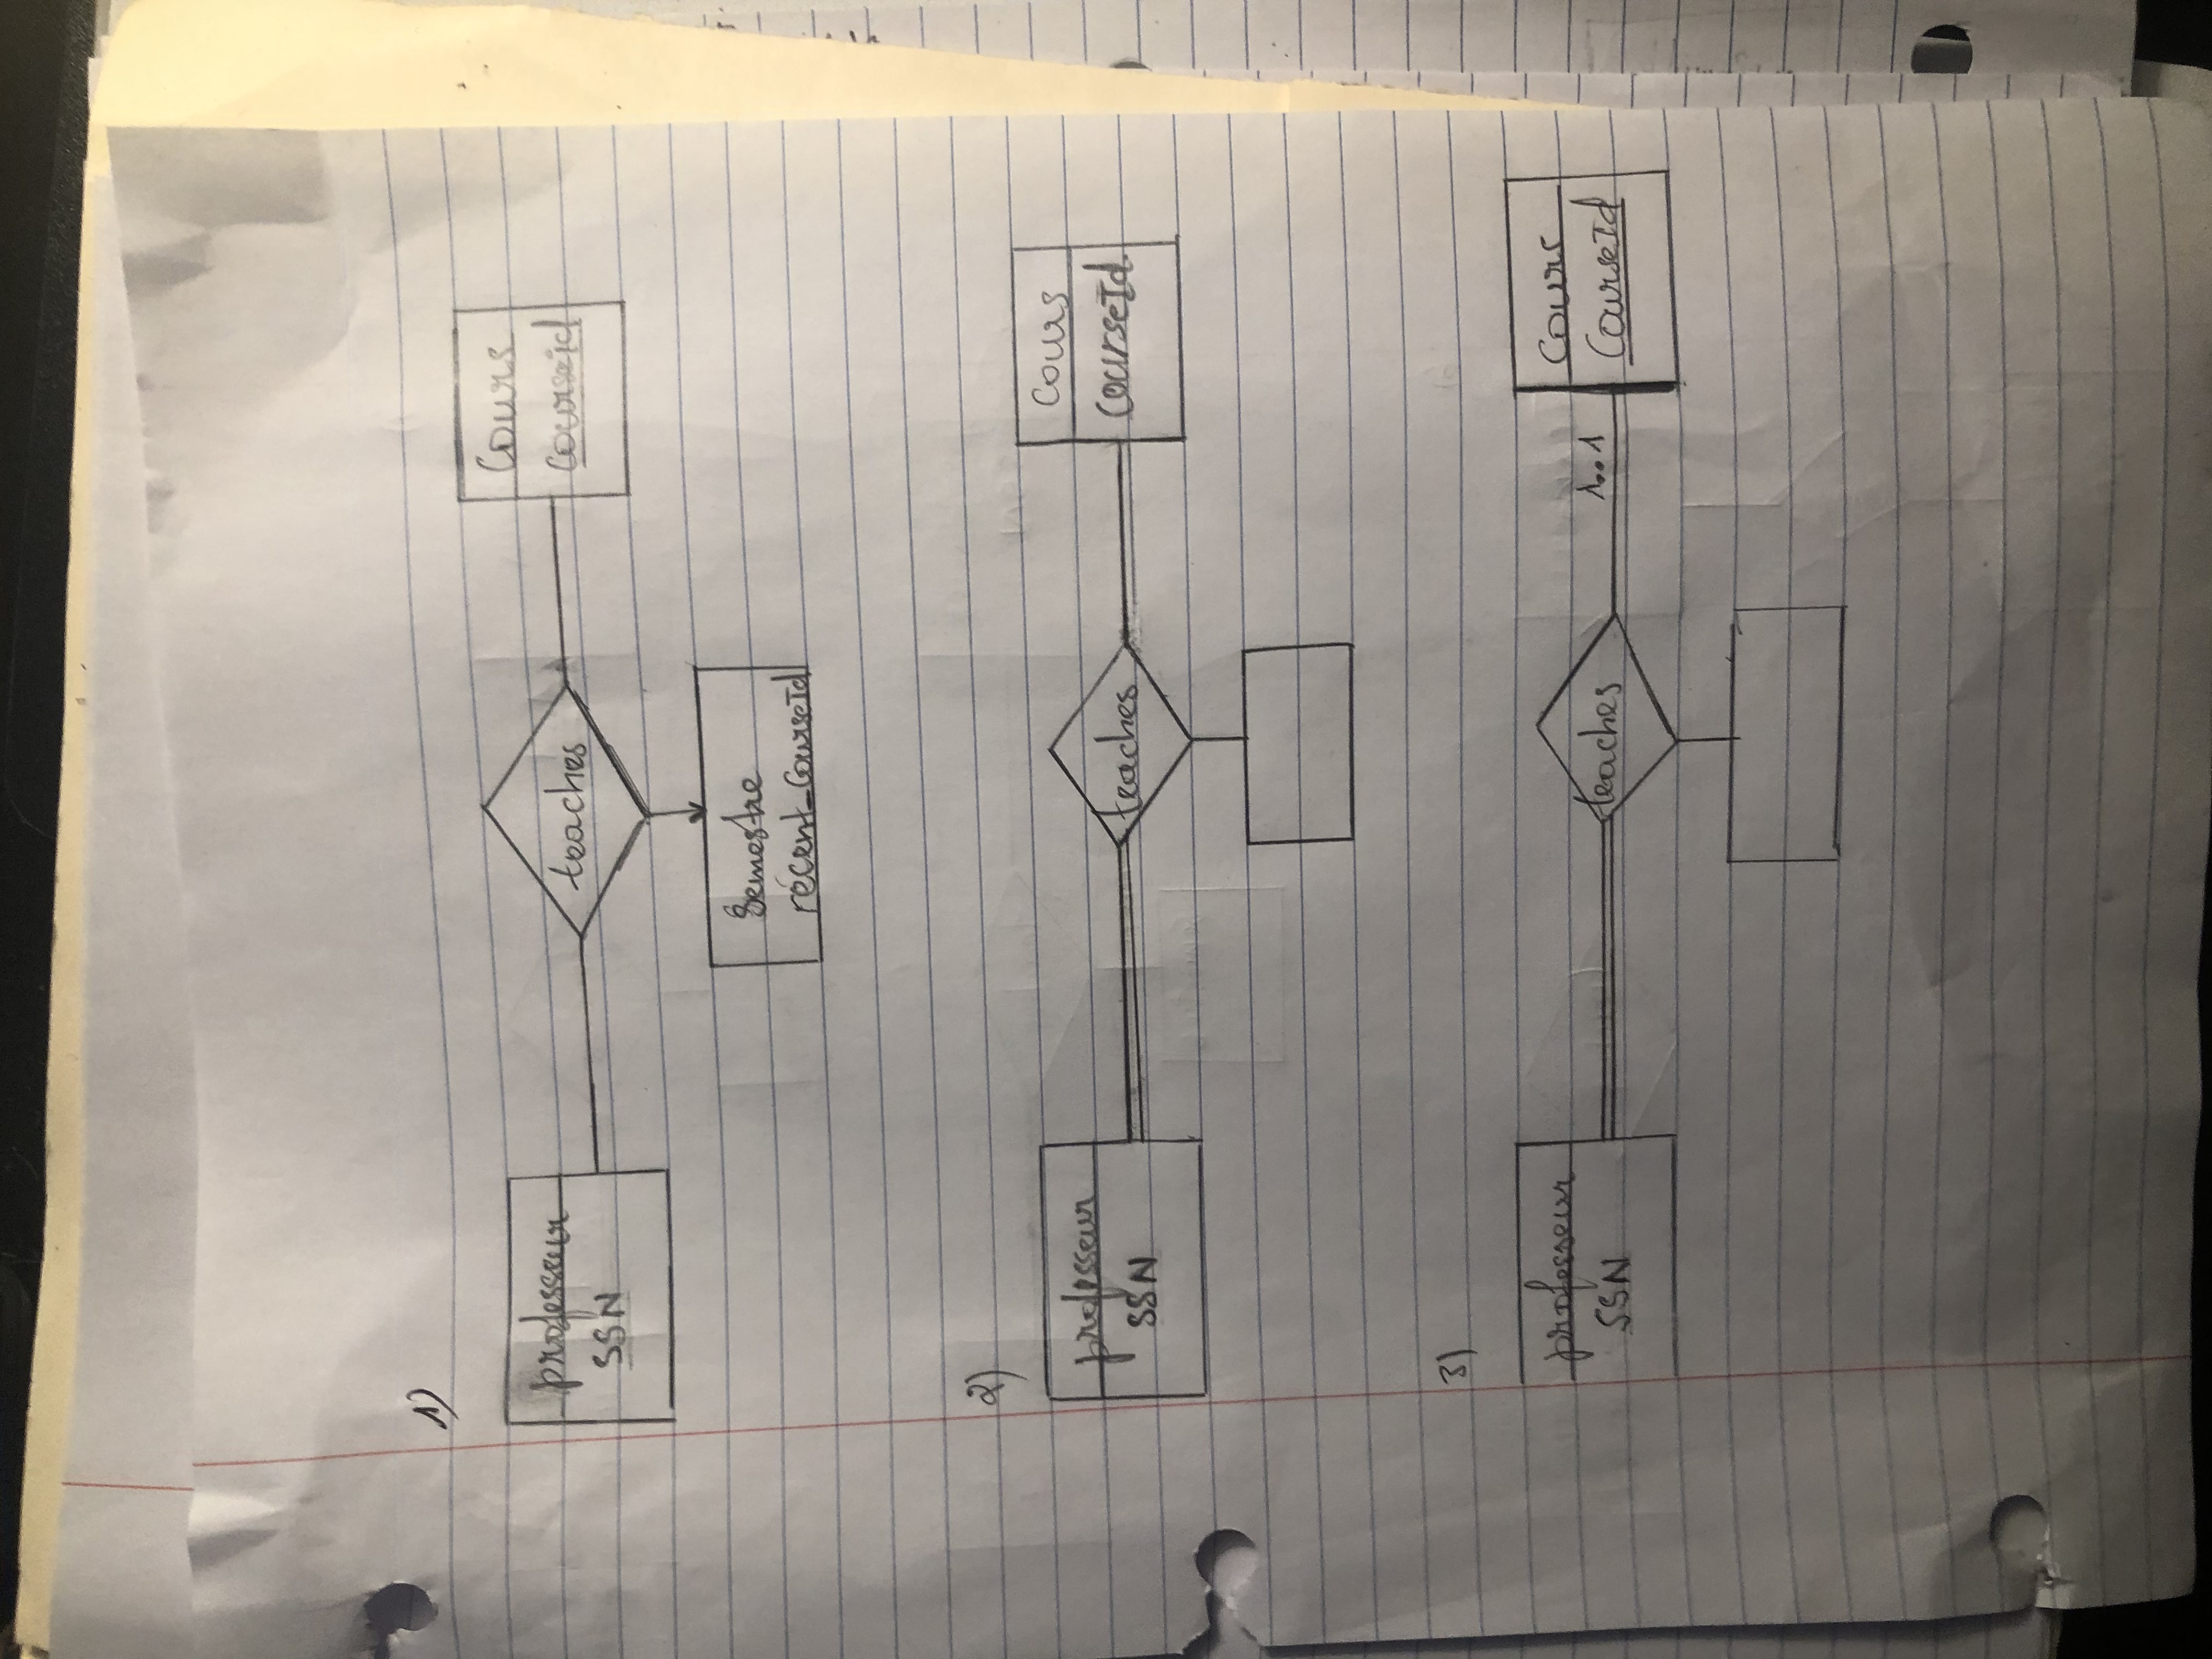 1)
professeur
SSN
teaches
Cours
Courseid
Semestre
récent_CourseId
2)
professeur
SSN
teaches
Cours
CourseId
3)
professeur
SSN
teaches
1..1
Cours
CourseId